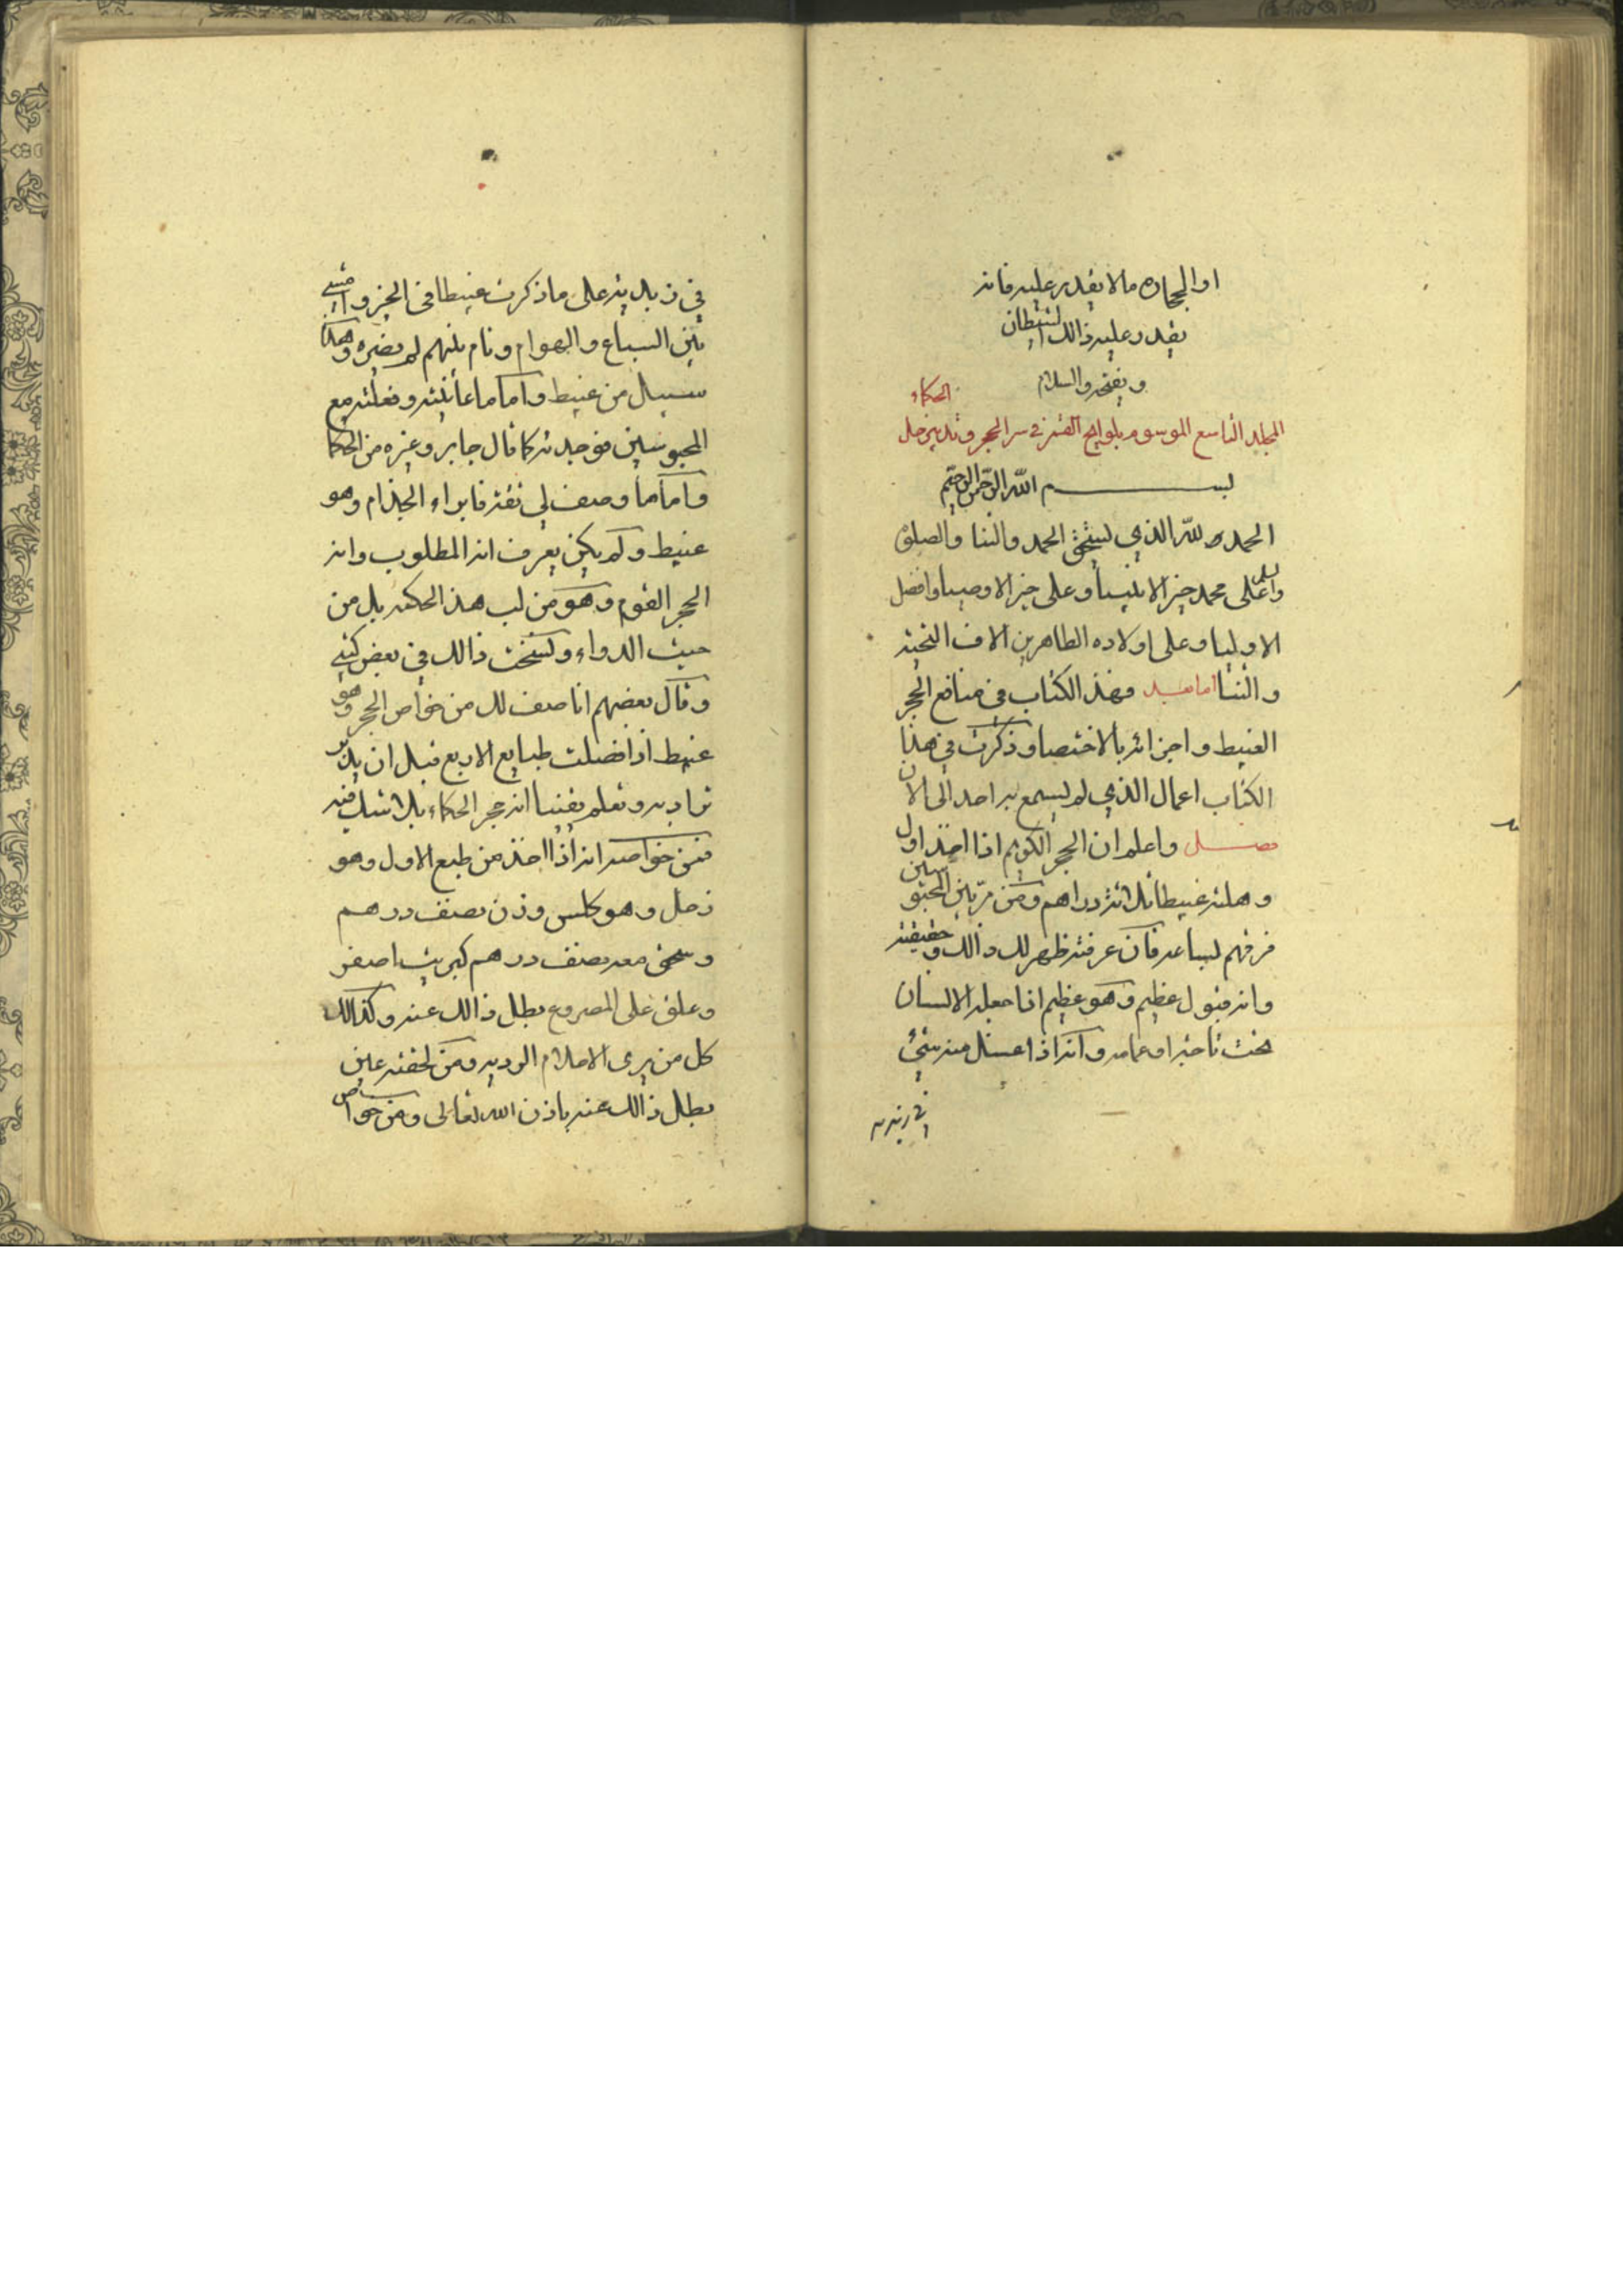 او الحجارة مالا يقدر عليه فانه
يقدر عليه ذالك الشيطان
ويفتخر والسلام
المجلد التاسع الموسوم بلوايح القمر في سر الحجر وتدبير زحل الحكماء
بسم الله الرحمن الرحيم
الحمد لله الذي يستحق الحمد والثنا والصلوة
والسلم على محمد خير الانبيا وعلى خير الاوصيا وافضل
الاوليا وعلى اولاده الطاهرين الاف التحية
والثنا اما بعد فهذ الكتاب في منافع الحجر
الغبيط واجزائه بالاختصا وذكرت في هذا
الكتاب اعمال الذي لم يسمع به احد الى الان
فصل واعلم ان الحجر الكريم اذا اخذ اول
وهلته غبيطا ثلاثة دراهم ومن مر بين المحبوسين
فرقهم لساعه فان عرفته ظهر لك ذالك وحقيقته
وانه قبول عظيم وهو عظيم اذا جعله الانسان
تحت تاجه او عمامه وانه اذا اغسل منه شيئ
في زيديه على ما ذكرت غبيطا في الخبز وامشي
بين السباع والهوام ونام بينهم لم يضره وهكذا
سيال من غبيط واما ما عانيته وفعلته مع
المحبوسين فوجدته كما قال جابر وغيره من الحكما
واما ما وصف لي ثقة فابراء الجذام وهو
غبيط ولم يكن يعرف انه المطلوب وانه
الحجر القوم وهو من لب هذ الحكمة بل من
حيث الدواء ونسخت ذالك في بعض كتبي
وقال بعضهم انا صف لك من خواص الحجر وهو
غبيط اذا فصلت طبايع الاربع قبل ان يدبر
تدابيره وتعلم يقينا انه حجر الحكماء بلا شك فيه
فمن خواصه انه اذا اخذ من طبع الاول وهو
زحل وهو كلس وزن نصف درهم
وسحق معه نصف درهم كبريت اصفر
وعلق على المصروع بطل ذالك عنه وكذالك
كل من يرى الاحلام الرديه ومن لحقته عين
بطل ذالك عنه باذن الله تعالى ومن خواص